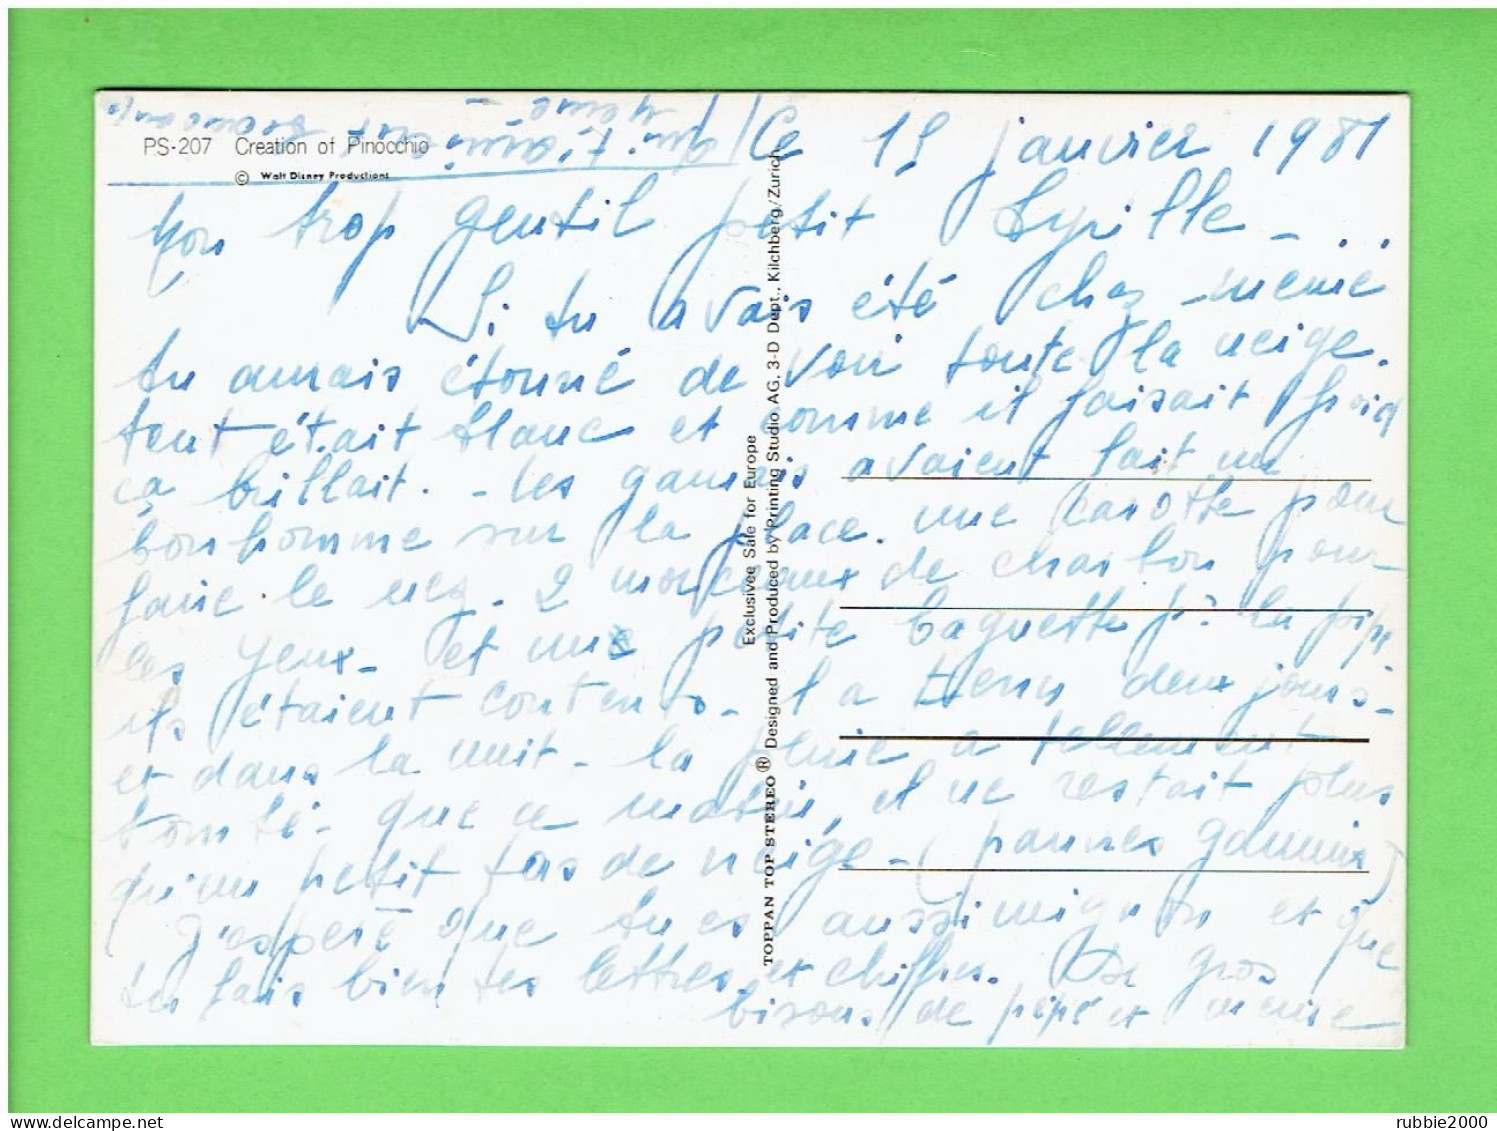 PS-207 Creation of Pinocchio
© Walt Disney Productions
Ce 15 janvier 1981
Mon trop gentil petit Cyrille - ...
Si tu avais été chez mémé
tu aurais étonné de voir toute la neige.
tout était blanc et comme il faisait froid
ça brillait. - les gamais avaient fait un
bonhomme sur la place. une carotte pour
faire le nez. 2 morceaux de charbon pour
les yeux - et une petite baguette pr la pipe
ils étaient contents - il a tenu deux jours -
et dans la nuit - la pluie a tellement
tombé - que ce matin, il ne restait plus
qu'un petit tas de neige - (pauvres gamins)
J'espère que tu es aussi mignon et que
tu fais bien tes lettres et chiffres. De gros
bisous de pépé et mémé
qui t'aime
beaucoup
Exclusivee Sale for Europe
TOPPAN TOP STEREO ® Designed and Produced by Printing Studio AG, 3-D Dept., Kilchberg/Zurich
delcampe.net
rubbie2000